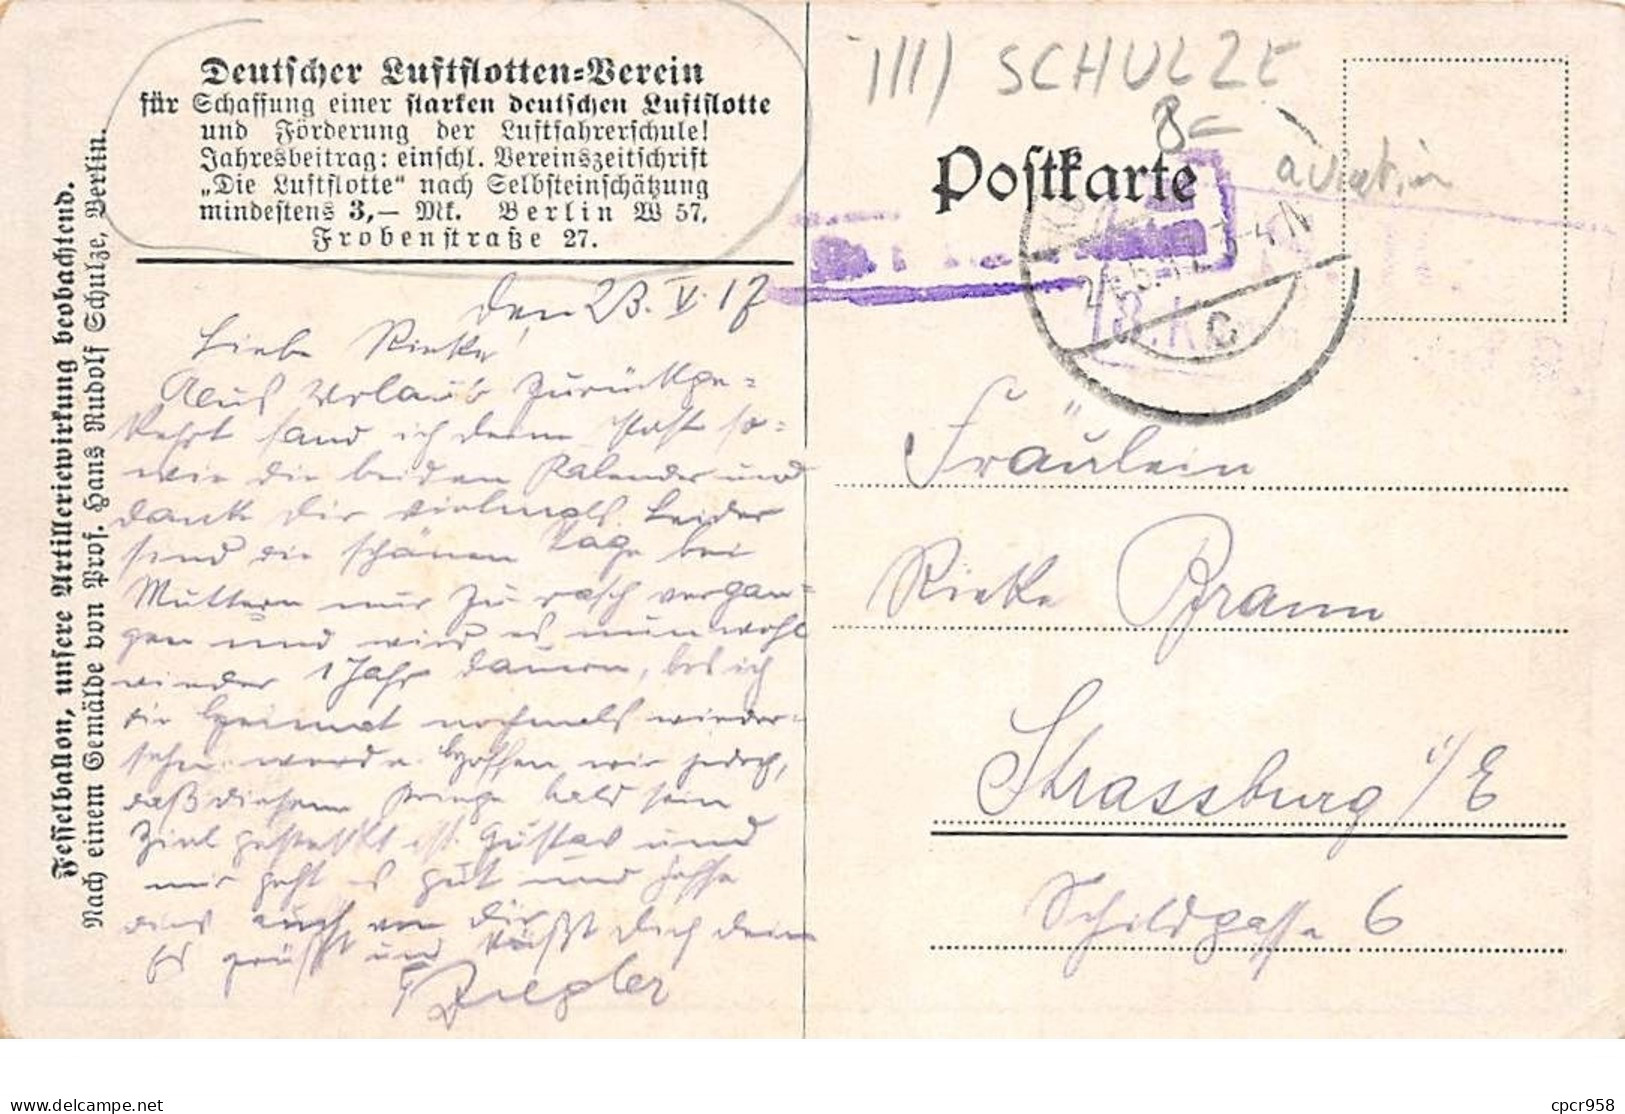 Deutscher Luftflotten=Verein
für Schaffung einer starken deutschen Luftflotte
und Förderung der Luftfahrerschule!
Jahresbeitrag: einschl. Vereinszeitschrift
„Die Luftflotte“ nach Selbsteinschätzung
mindestens 3,— Mk. Berlin W 57,
Frobenstraße 27.
Fesselballon, unsere Artilleriewirkung beobachtend.
Nach einem Gemälde von Prof. Hans Rudolf Schulze, Berlin.
den 23. V. 17
Liebe Rieke!
Aus Urlaub zurückge=
kehrt fand ich deine Post so=
wie die beiden Kalender und
danke dir vielmals. Leider
sind die schönen Tage bei
Muttern nur zu rasch vergan=
gen und wird es nun wohl
wieder 1 Jahr dauern, bis ich
die Heimat nochmals wieder=
sehn werde. Hoffen wir jedoch,
daß diesem Kriege bald sein
Ziel gesteckt ist. Gustav und
mir geht es gut und hoffe
dies auch von dir
Es grüßt und küßt dich dein
Ziegler
III) SCHULZE
8-
aviation
Postkarte
4 N
C
Fräulein
Rieke Braun
Strassburg i/E
Schildgasse 6
delcampe.net
cpcr958